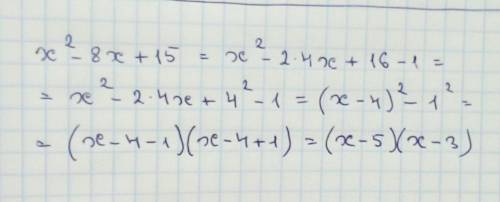 x² - 8x + 15 = x² - 2·4x + 16 - 1 =
= x² - 2·4x + 4² - 1 = (x - 4)² - 1² =
= (x - 4 - 1)(x - 4 + 1) = (x - 5)(x - 3)